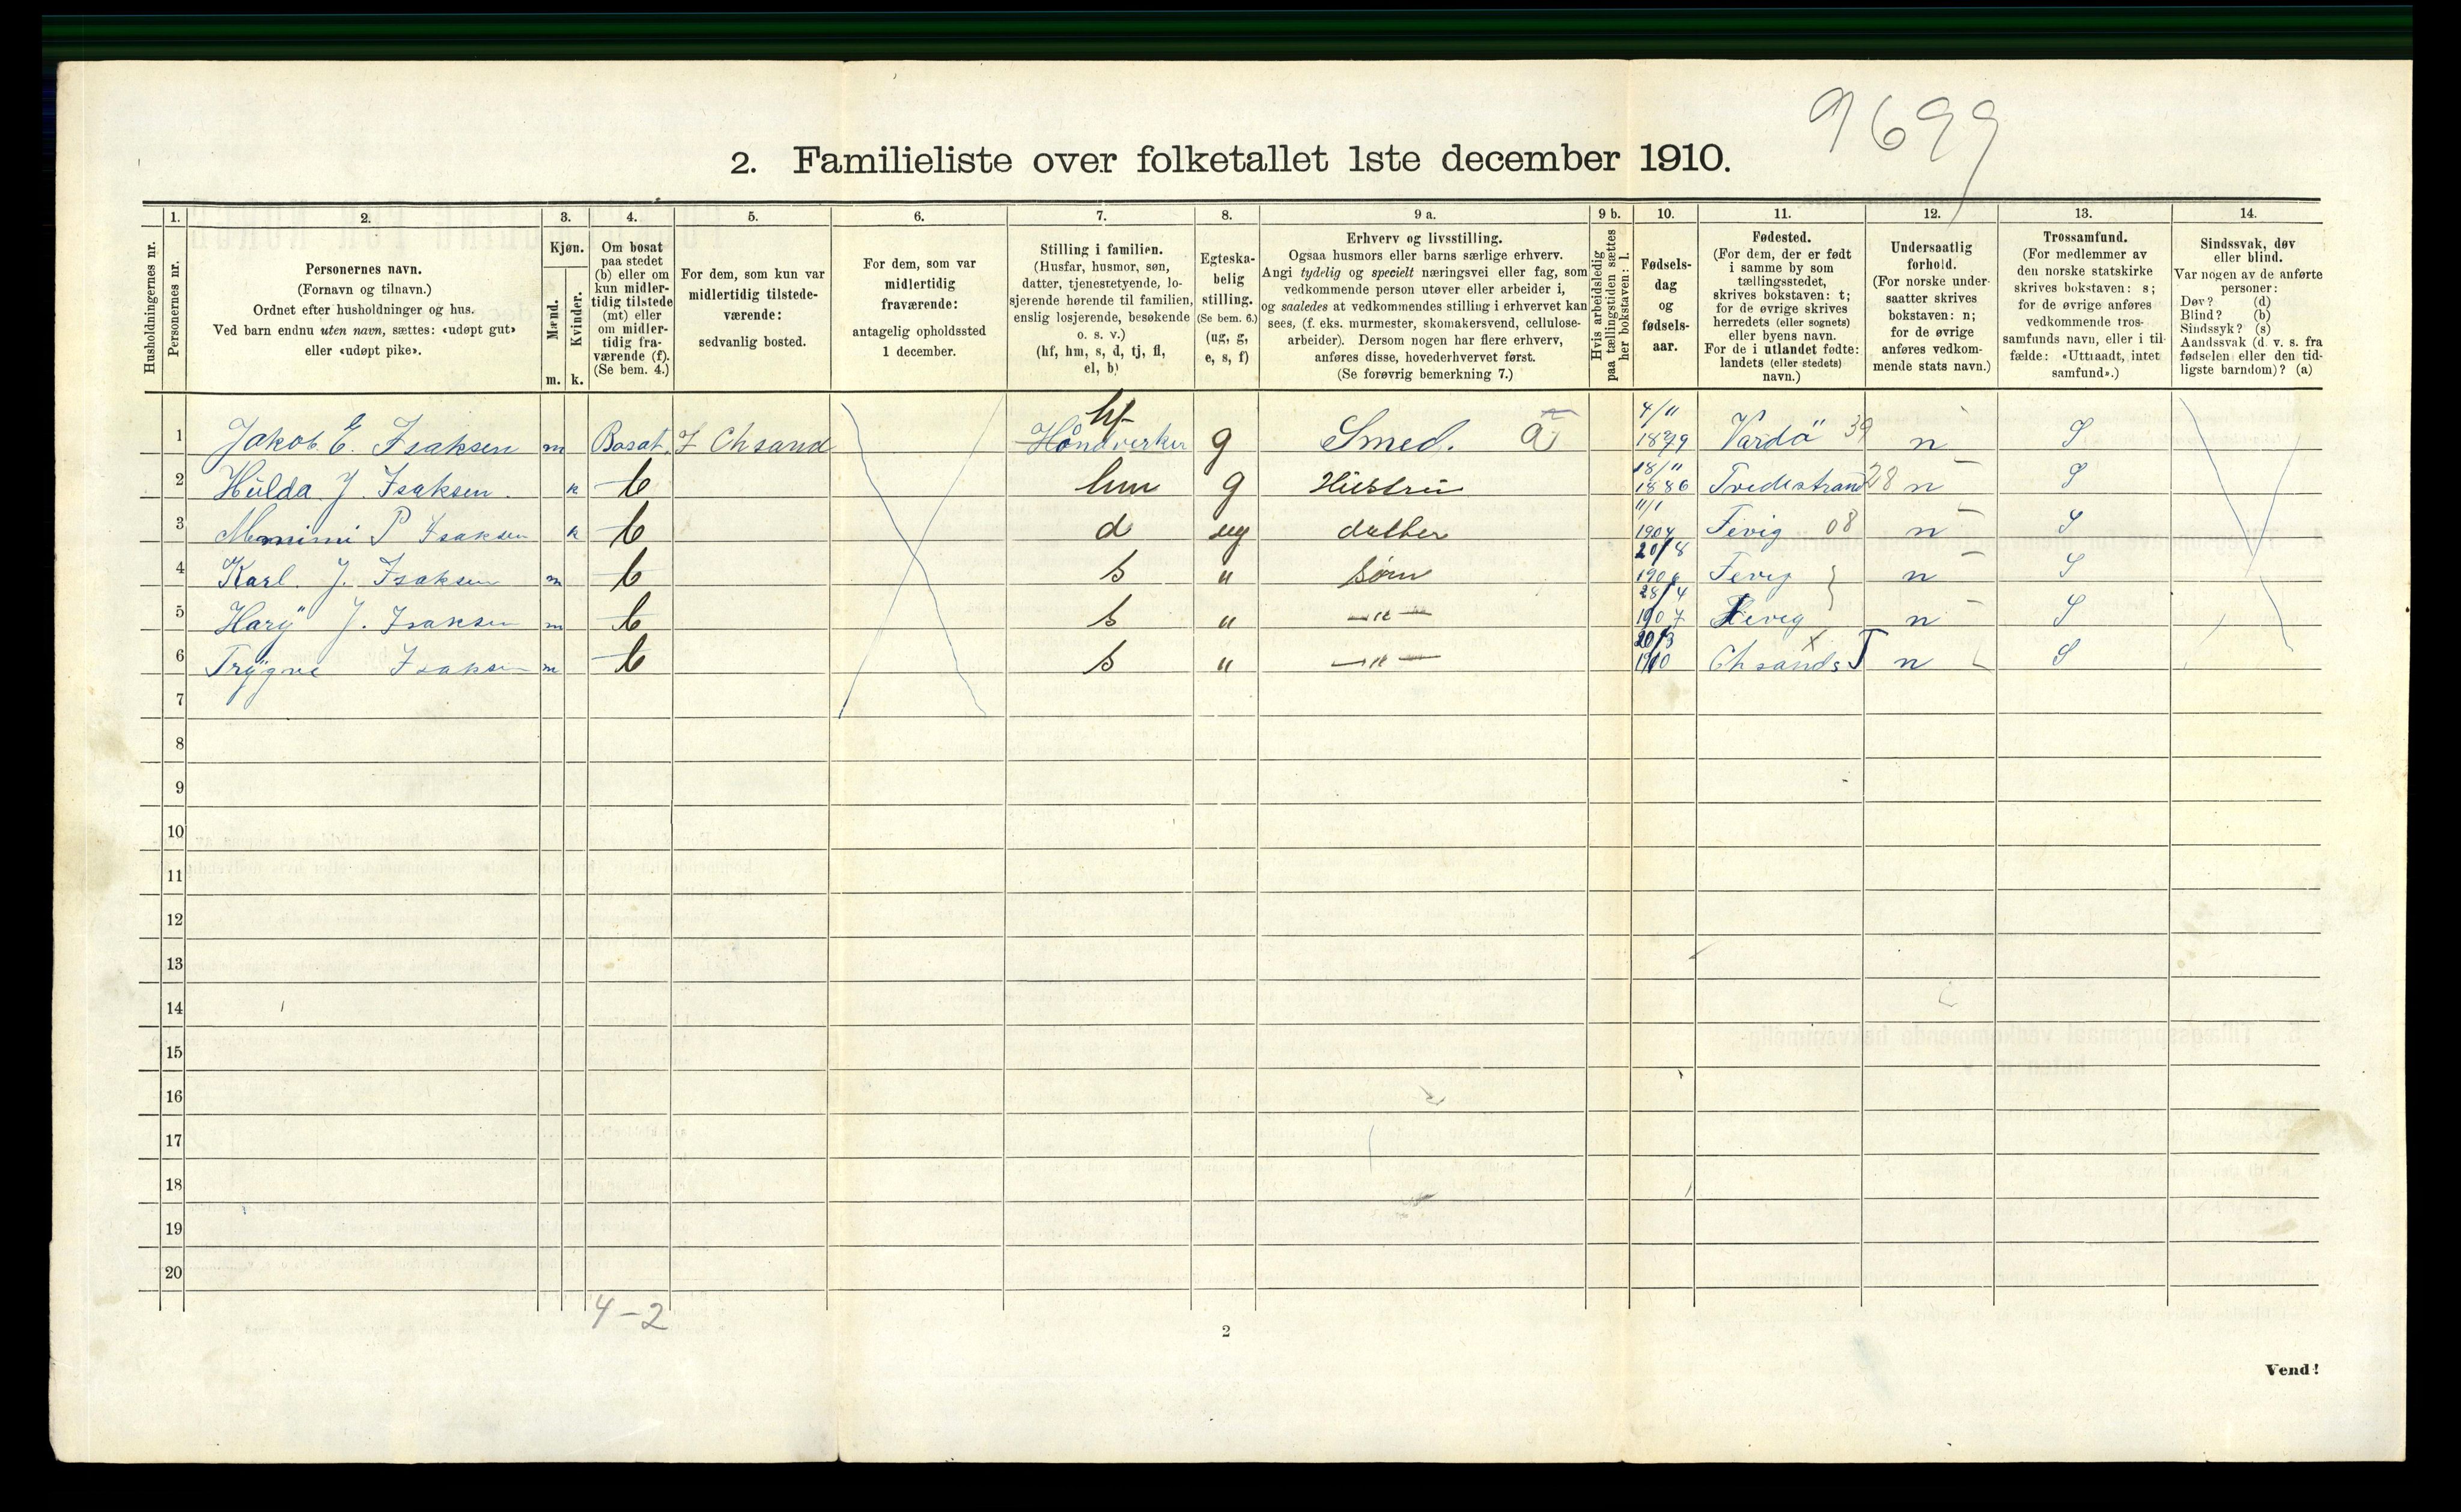 9699
2. Familieliste over folketallet 1ste december 1910.
Husholdningernes nr.
1. Personernes nr.
2. Personernes navn. (Fornavn og tilnavn.) Ordnet efter husholdninger og hus. Ved barn endnu uten navn, sættes: «udøpt gut» eller «udøpt pike».
3. Kjøn. Mænd. m. Kvinder. k.
4. Om bosat paa stedet (b) eller om kun midlertidig tilstede (mt) eller om midlertidig fraværende (f). (Se bem. 4.)
5. For dem, som kun var midlertidig tilstedeværende: sedvanlig bosted.
6. For dem, som var midlertidig fraværende: antagelig opholdssted 1 december.
7. Stilling i familien. (Husfar, husmor, søn, datter, tjenestetyende, losjerende hørende til familien, enslig losjerende, besøkende o. s. v.) (hf, hm, s, d, tj, fl, el, b)
8. Egteskabelig stilling. (Se bem. 6.) (ug, g, e, s, f)
9 a. Erhverv og livsstilling. Ogsaa husmors eller barns særlige erhverv. Angi tydelig og specielt næringsvei eller fag, som vedkommende person utøver eller arbeider i, og saaledes at vedkommendes stilling i erhvervet kan sees, (f. eks. murmester, skomakersvend, cellulosearbeider). Dersom nogen har flere erhverv, anføres disse, hovederhvervet først. (Se forøvrig bemerkning 7.)
9 b. Hvis arbeidsledig paa tællingstiden sættes her bokstaven: l.
10. Fødselsdag og fødselsaar.
11. Fødested. (For dem, der er født i samme by som tællingsstedet, skrives bokstaven: t; for de øvrige skrives herredets (eller sognets) eller byens navn. For de i utlandet fødte: landets (eller stedets) navn.)
12. Undersaatlig forhold. (For norske undersaatter skrives bokstaven: n; for de øvrige anføres vedkommende stats navn.)
13. Trossamfund. (For medlemmer av den norske statskirke skrives bokstaven: s; for de øvrige anføres vedkommende trossamfunds navn, eller i tilfælde: «Uttraadt, intet samfund».)
14. Sindssvak, døv eller blind. Var nogen av de anførte personer: Døv? (d) Blind? (b) Sindssyk? (s) Aandssvak (d. v. s. fra fødselen eller den tidligste barndom)? (a)
1 Jakob E. Isaksen m Bosat I Chsand hf Håndverker g Smed. a 4/11 1879 Vardö 39 n S
2 Hulda J. Isaksen k b hm g Hüstru 18/11 1886 Tvedestrand 28 n S
3 Mimmi P Isaksen k b d ug datter 11/1 1904 Fevig 08 n S
4 Karl. J. Isaksen m b s " sørn 20/8 1906 Fevig } n S
5 Hary J. Isaksen m b s " —"— 28/4 1907 Fevig n S
6 Trygve Isaksen m b s " —"— 20/3 1910 Chsands T n S
7
8
9
10
11
12
13
14
15
16
17
18
19
20
4-2
2
Vend!